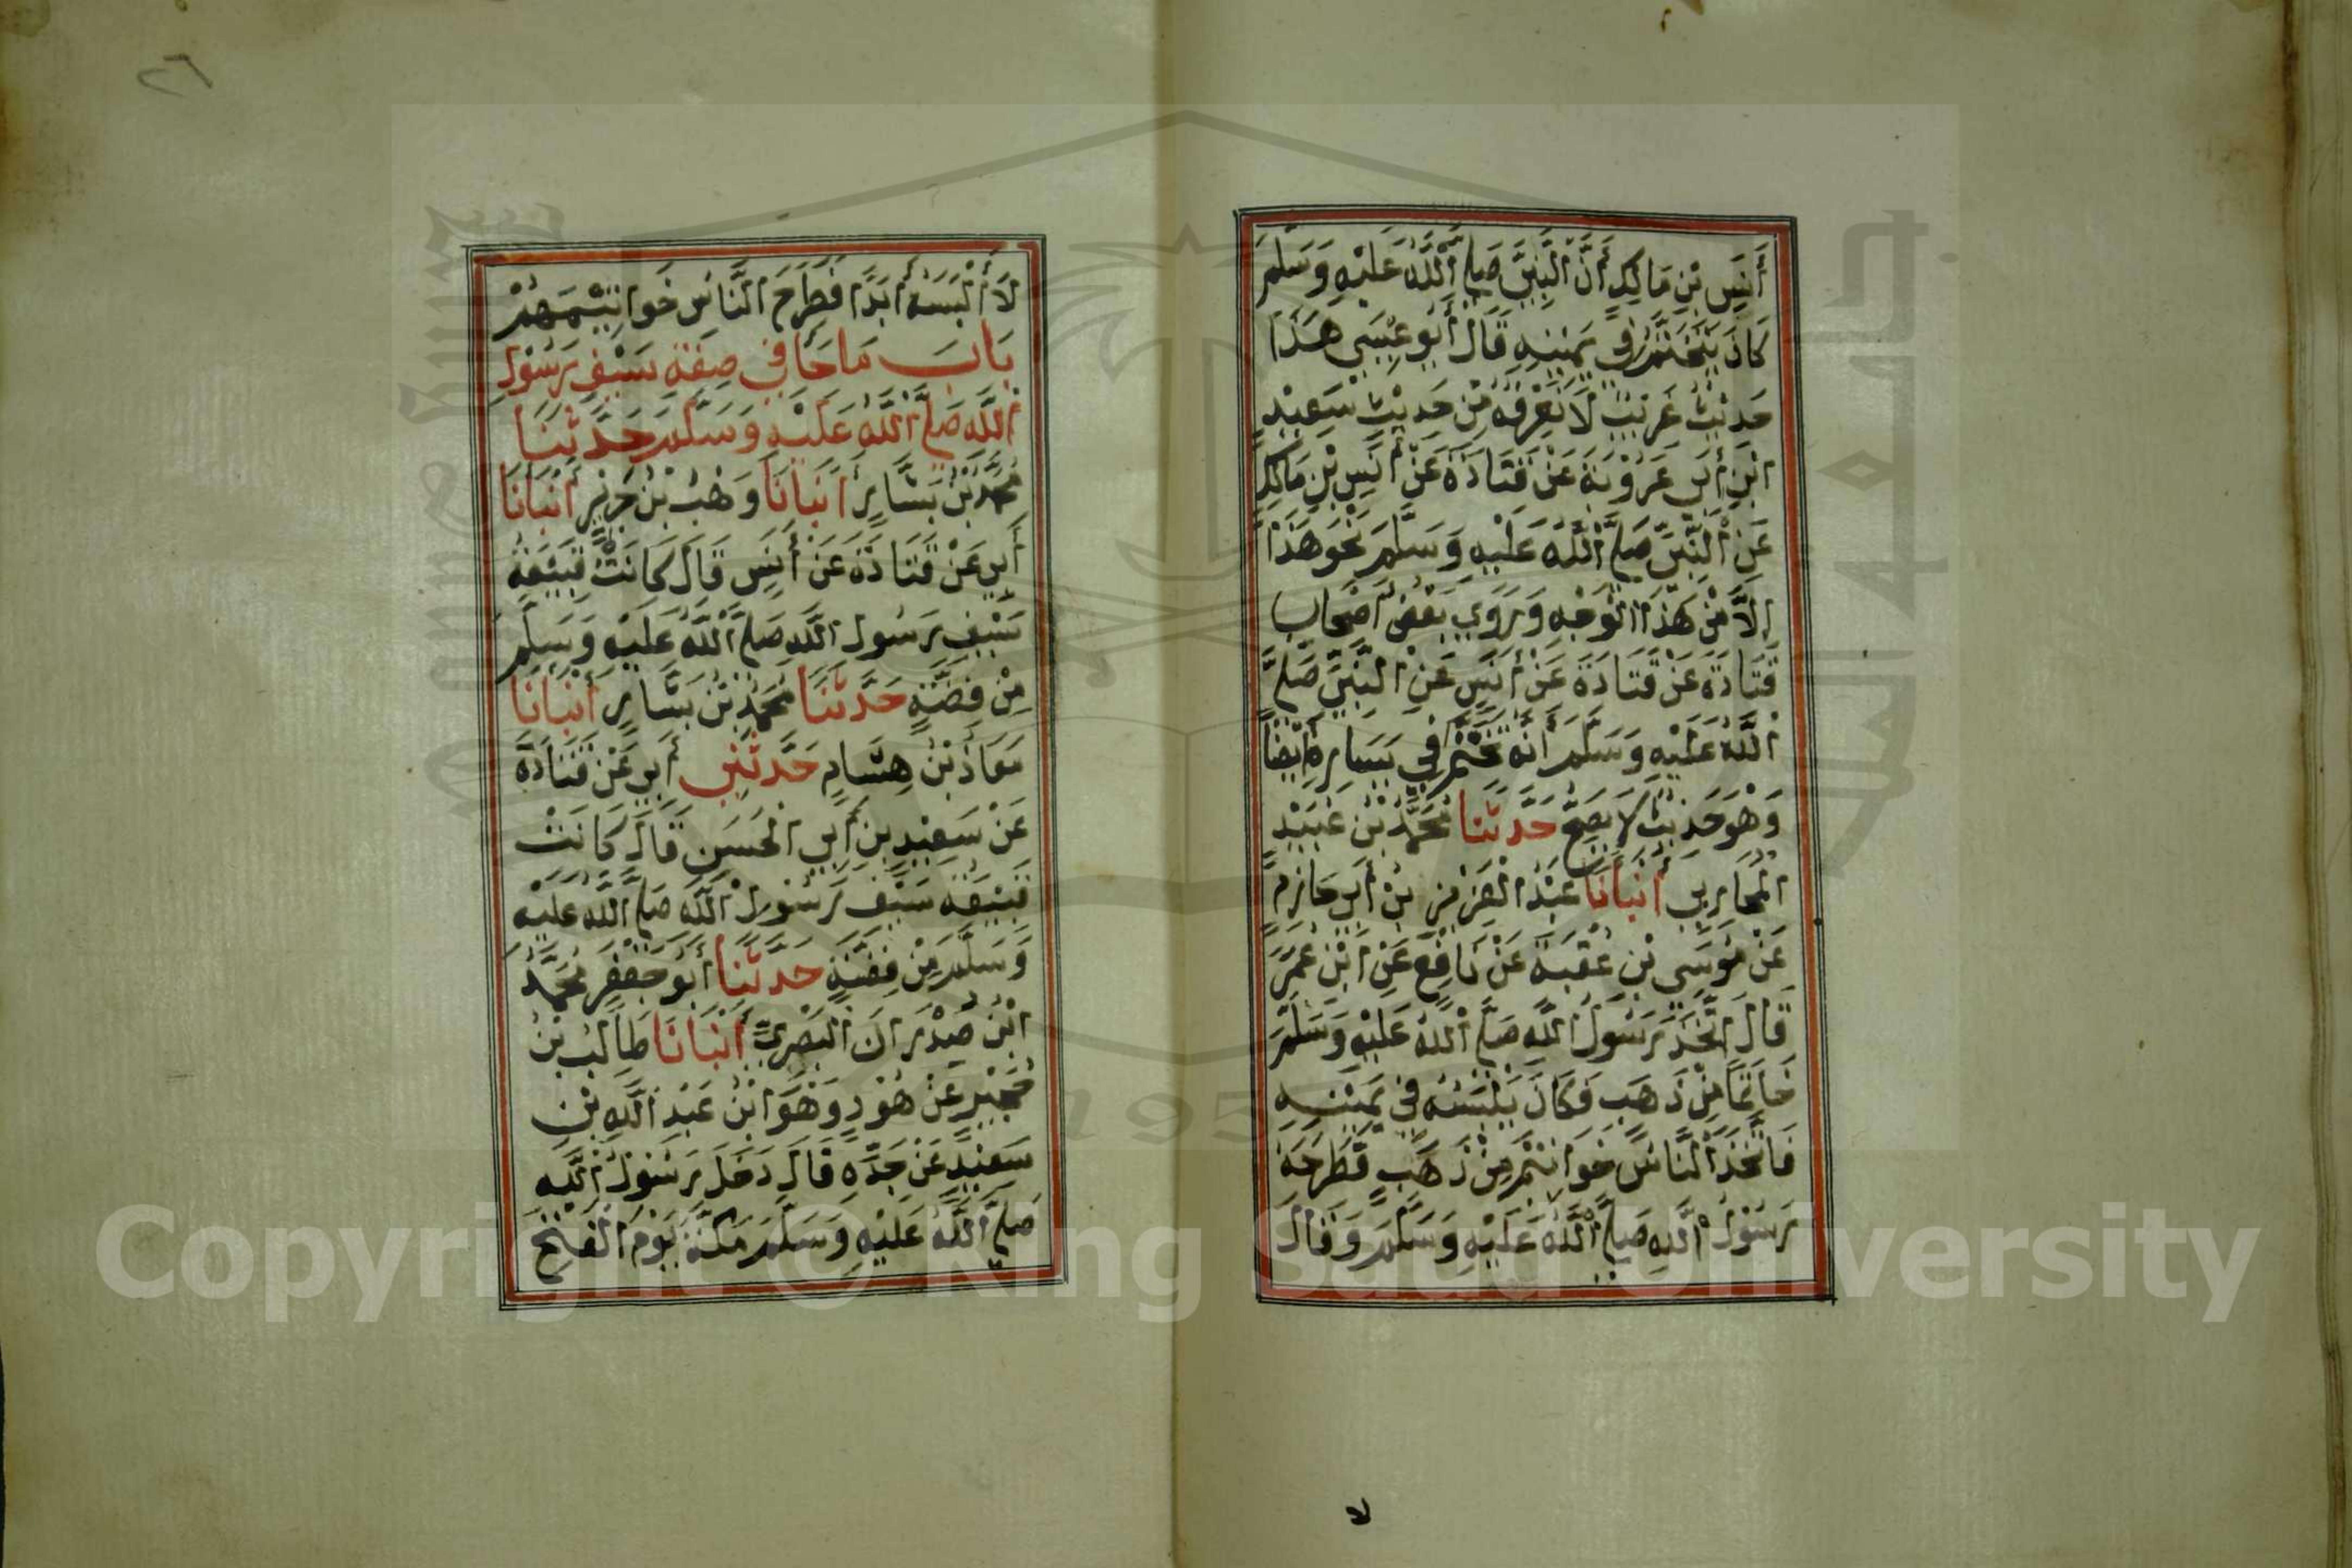 أَنَسِ بْنِ مَالِكٍ أَنَّ النَّبِيَّ صَلَّى اللَّهُ عَلَيْهِ وَسَلَّمَ
كَانَ يَتَخَتَّمُ فِي يَمِينِهِ قَالَ أَبُو عِيسَى هَذَا
حَدِيثٌ غَرِيبٌ لَا نَعْرِفُهُ مِنْ حَدِيثِ سَعِيدِ
ابْنِ أَبِي عَرُوبَةَ عَنْ قَتَادَةَ عَنْ أَنَسِ بْنِ مَالِكٍ
عَنِ النَّبِيِّ صَلَّى اللَّهُ عَلَيْهِ وَسَلَّمَ نَحْوَ هَذَا
إِلَّا مِنْ هَذَا الْوَجْهِ وَرَوَى بَعْضُ أَصْحَابِ
قَتَادَةَ عَنْ قَتَادَةَ عَنْ أَنَسٍ عَنِ النَّبِيِّ صَلَّى
اللَّهُ عَلَيْهِ وَسَلَّمَ أَنَّهُ تَخَتَّمَ فِي يَسَارِهِ أَيْضًا
وَهُوَ حَدِيثٌ لَا يَصِحُّ حَدَّثَنَا مُحَمَّدُ بْنُ عُبَيْدٍ
الْمُحَارِبِي أَنْبَأَنَا عَبْدُ الْعَزِيزِ بْنُ أَبِي حَازِمٍ
عَنْ مُوسَى بْنِ عُقْبَةَ عَنْ نَافِعٍ عَنِ ابْنِ عُمَرَ
قَالَ اتَّخَذَ رَسُولُ اللَّهِ صَلَّى اللَّهُ عَلَيْهِ وَسَلَّمَ
خَاتَمًا مِنْ ذَهَبٍ فَكَانَ يَلْبَسُهُ فِي يَمِينِهِ
فَاتَّخَذَ النَّاسُ خَوَاتِيمَ مِنْ ذَهَبٍ فَطَرَحَهُ
رَسُولُ اللَّهِ صَلَّى اللَّهُ عَلَيْهِ وَسَلَّمَ وَقَالَ
لا
٢٦
لَا أَلْبَسُهُ أَبَدًا فَطَرَحَ النَّاسُ خَوَاتِيمَهُمْ
بَاب مَا جَا فِي صِفَةِ سَيْفِ رَسُولِ
اللَّهِ صَلَّى اللَّهُ عَلَيْهِ وَسَلَّمَ حَدَّثَنَا
مُحَمَّدُ بْنُ بَشَّارٍ أَنْبَأَنَا وَهْبُ بْنُ جَرِيرٍ أَنْبَأَنَا
أَبِي عَنْ قَتَادَةَ عَنْ أَنَسٍ قَالَ كَانَتْ قَبِيعَةُ
سَيْفِ رَسُولِ اللَّهِ صَلَّى اللَّهُ عَلَيْهِ وَسَلَّمَ
مِنْ فِضَّةٍ حَدَّثَنَا مُحَمَّدُ بْنُ بَشَّارٍ أَنْبَأَنَا
مُعَاذُ بْنُ هِشَامٍ حَدَّثَنِي أَبِي عَنْ قَتَادَةَ
عَنْ سَعِيدِ بْنِ أَبِي الْحَسَنِ قَالَ كَانَتْ
قَبِيعَةُ سَيْفِ رَسُولِ اللَّهِ صَلَّى اللَّهُ عَلَيْهِ
وَسَلَّمَ مِنْ فِضَّةٍ حَدَّثَنَا أَبُو جَعْفَرٍ مُحَمَّدُ
ابْنُ صُدْرَانَ الْبَصْرِيُّ أَنْبَأَنَا طَالِبُ بْنُ
حُجَيْرٍ عَنْ هُودٍ وَهُوَ ابْنُ عَبْدِ اللَّهِ بْنِ
سَعِيدٍ عَنْ جَدِّهِ قَالَ دَخَلَ رَسُولُ اللَّهِ
صَلَّى اللَّهُ عَلَيْهِ وَسَلَّمَ مَكَّةَ يَوْمَ الْفَتْحِ
Copyright © King Saud University